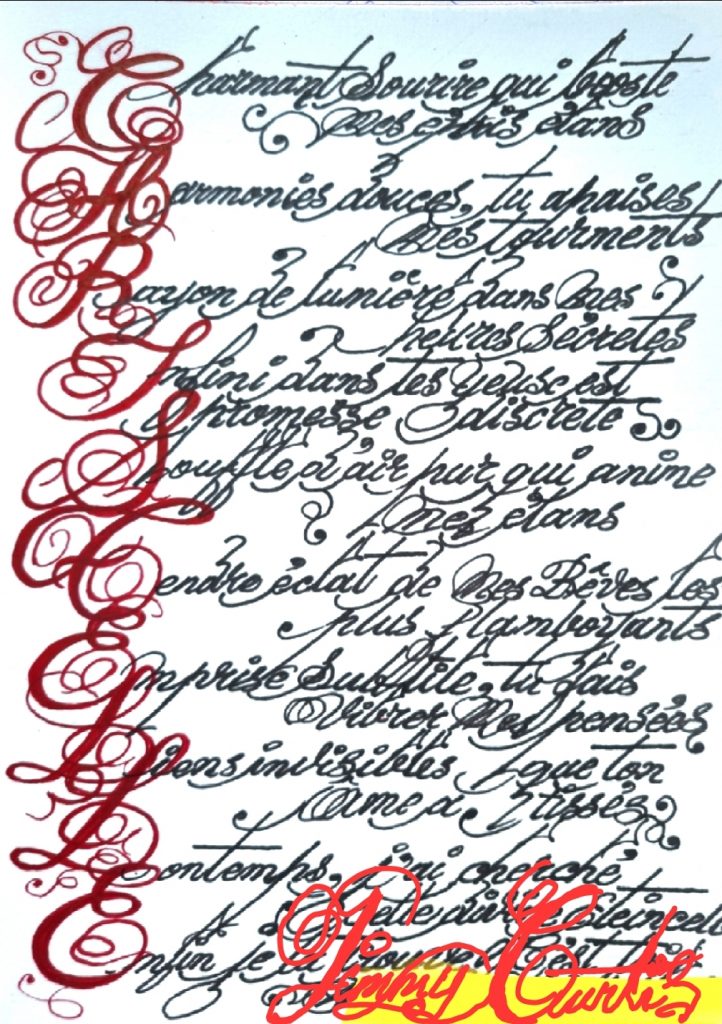 Charmant Sourire qui booste
Mes épris élans
Harmonies douces, tu apaises
Mes tourments
Rayon de lumière dans Mes
heures Sécretes
Infini dans tes yeux est
promesse discrete
Souffle d'air pur qui anime
mes élans
Tendre éclat de Mes Rêves les
plus flamboyants
Emprise Subtile, tu fais
Vivrer Mes pensées
Liens invisibles que ton
âme a tissés
Lontemps, j'ai cherché
Cette divine étincelle
Enfin je l'ai trouvé C'est toi
Jimmy Curtis